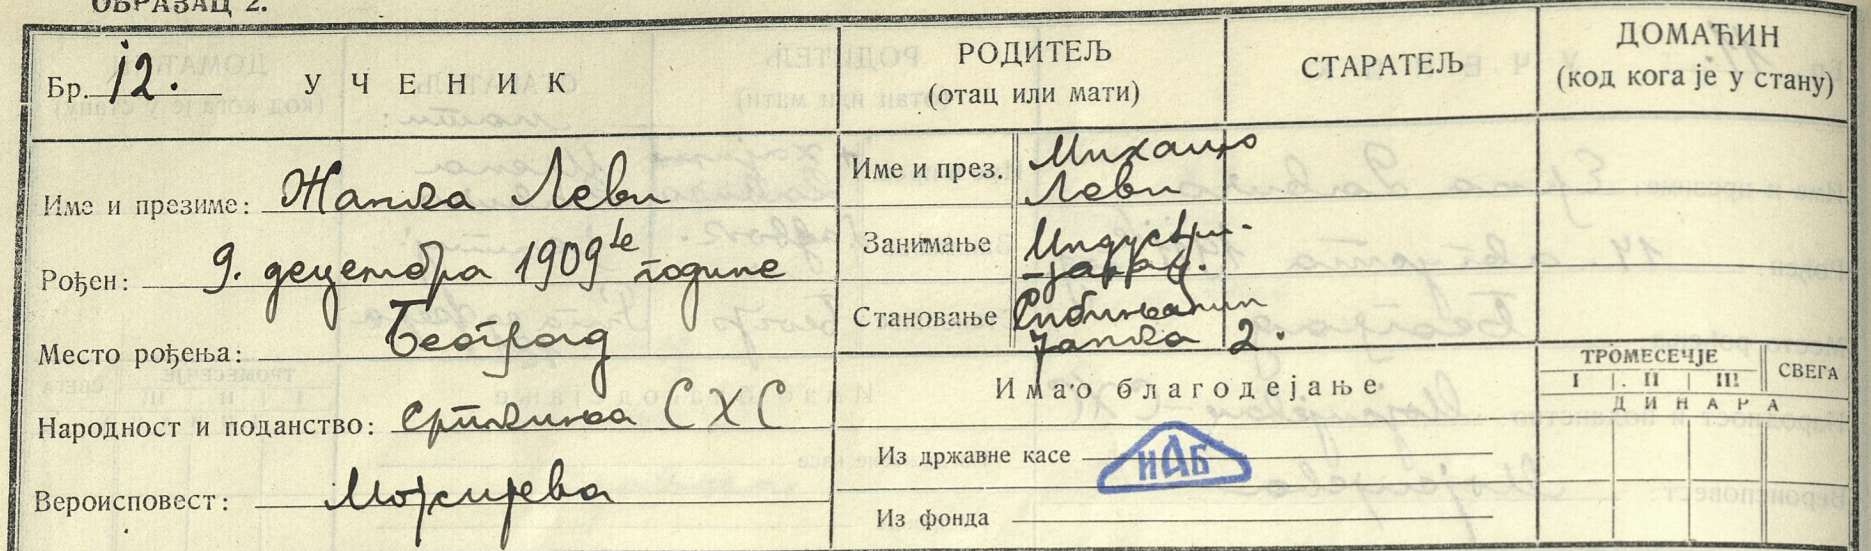 ОБРАЗАЦ 2.
Бр. 12. УЧЕНИК
РОДИТЕЉ
(отац или мати)
СТАРАТЕЉ
ДОМАЋИН
(код кога је у стану)
Име и презиме: Жанка Леви
Рођен: 9. децембра 1909 те године
Место рођења: Београд
Народност и поданство: српкиња СХС
Вероисповест: Мојсијева
Име и през. Михаило
Леви
Занимање Индустри-
јалац.
Становање Сибињанин
Јанка 2.
Имао благодејање
Из државне касе
ИАБ
Из фонда
ТРОМЕСЕЧЈЕ
СВЕГА
I II III
ДИНАРА